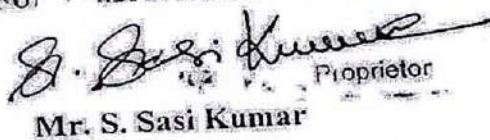 S. Sasi Kumar
Proprietor
Mr. S. Sasi Kumar